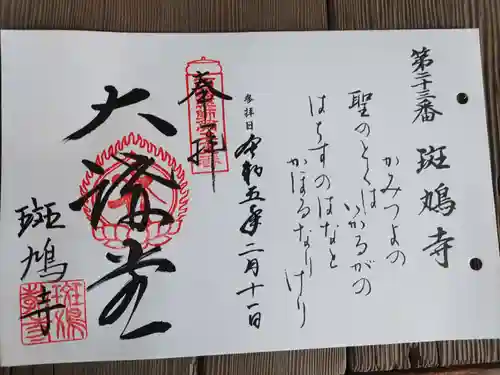 第二十三番 斑鳩寺
かみつよの
聖のとくは
いかるがの
はちすのはなと
かほるなりけり
参拝日 令和五年二月十一日
奉拝
大講堂
斑鳩寺